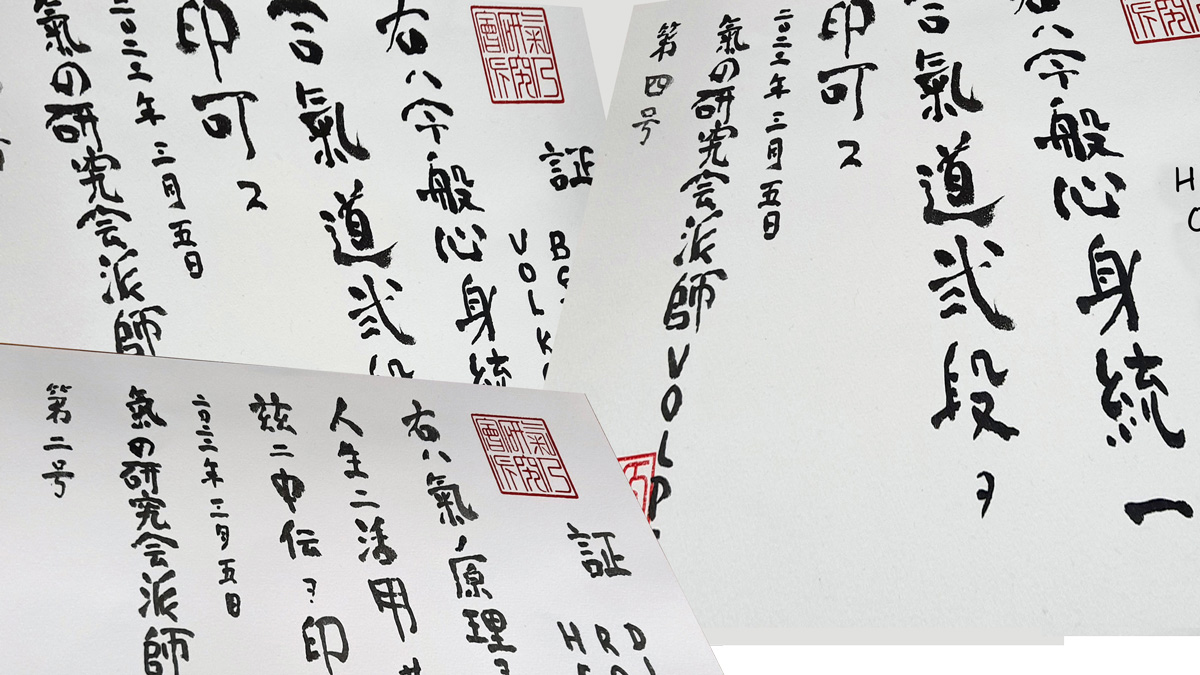 証
VOLK
右ハ今般心身統
合氣道弐段
印可ス
二〇二二年三月五日
氣の研究会派師
右ハ今般心身統一
合氣道弐段ヲ
印可ス
二〇二二年三月五日
氣の研究会派師VOL
第四号
証
右ハ氣ノ原理ヲ
人生ニ活用
茲ニ中伝ヲ印
二〇二二年三月五日
氣の研究会派師
第二号